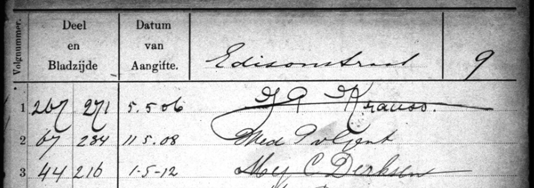 Volgnummer. Deel en Bladzijde Datum van Aangifte. Edisonstraat 9
1 267 271 5.5.06 J G Krauss.
2 67 284 11 5.08 Wed
3 44 216 1-5-12 Mej C Derksen